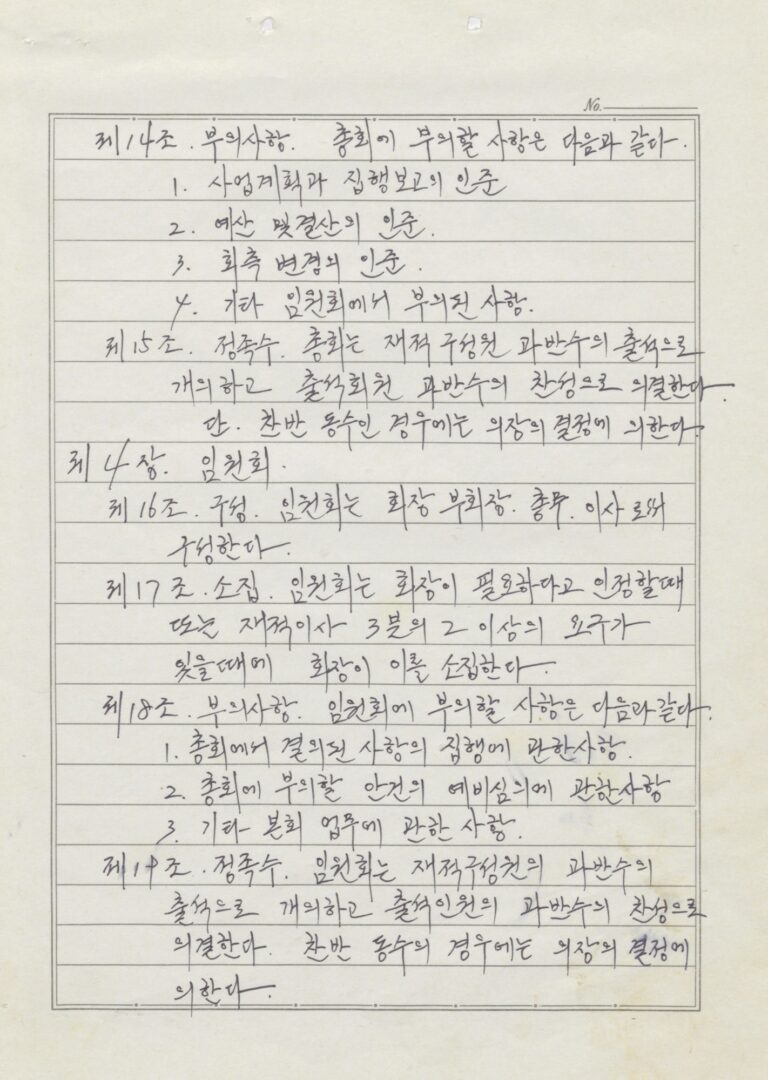 No.
제14조. 부의사항. 총회에 부의할 사항은 다음과 같다.
1. 사업계획과 집행보고의 인준
2. 예산 및 결산의 인준.
3. 회측 변경의 인준.
4. 기타 임원회에서 부의된 사항.
제15조. 정족수. 총회는 재적 구성원 과반수의 출석으로
개의하고 출석회원 과반수의 찬성으로 의결한다.
단. 찬반 동수인 경우에는 의장의 결정에 의한다.
제4장. 임원회.
제16조. 구성. 임원회는 회장 부회장. 총무. 이사로써
구성한다.
제17조. 소집. 임원회는 회장이 필요하다고 인정할때
또는 재적이사 3분의 2 이상의 요구가
있을때에 회장이 이를 소집한다.
제18조. 부의사항. 임원회에 부의할 사항은 다음과 같다.
1. 총회에서 결의된 사항의 집행에 관한사항.
2. 총회에 부의할 안건의 예비심의에 관한사항
3. 기타 본회 업무에 관한 사항.
제19조. 정족수. 임원회는 재적구성원의 과반수의
출석으로 개의하고 출석인원의 과반수의 찬성으로
의결한다. 찬반 동수의 경우에는 의장의 결정에
의한다.